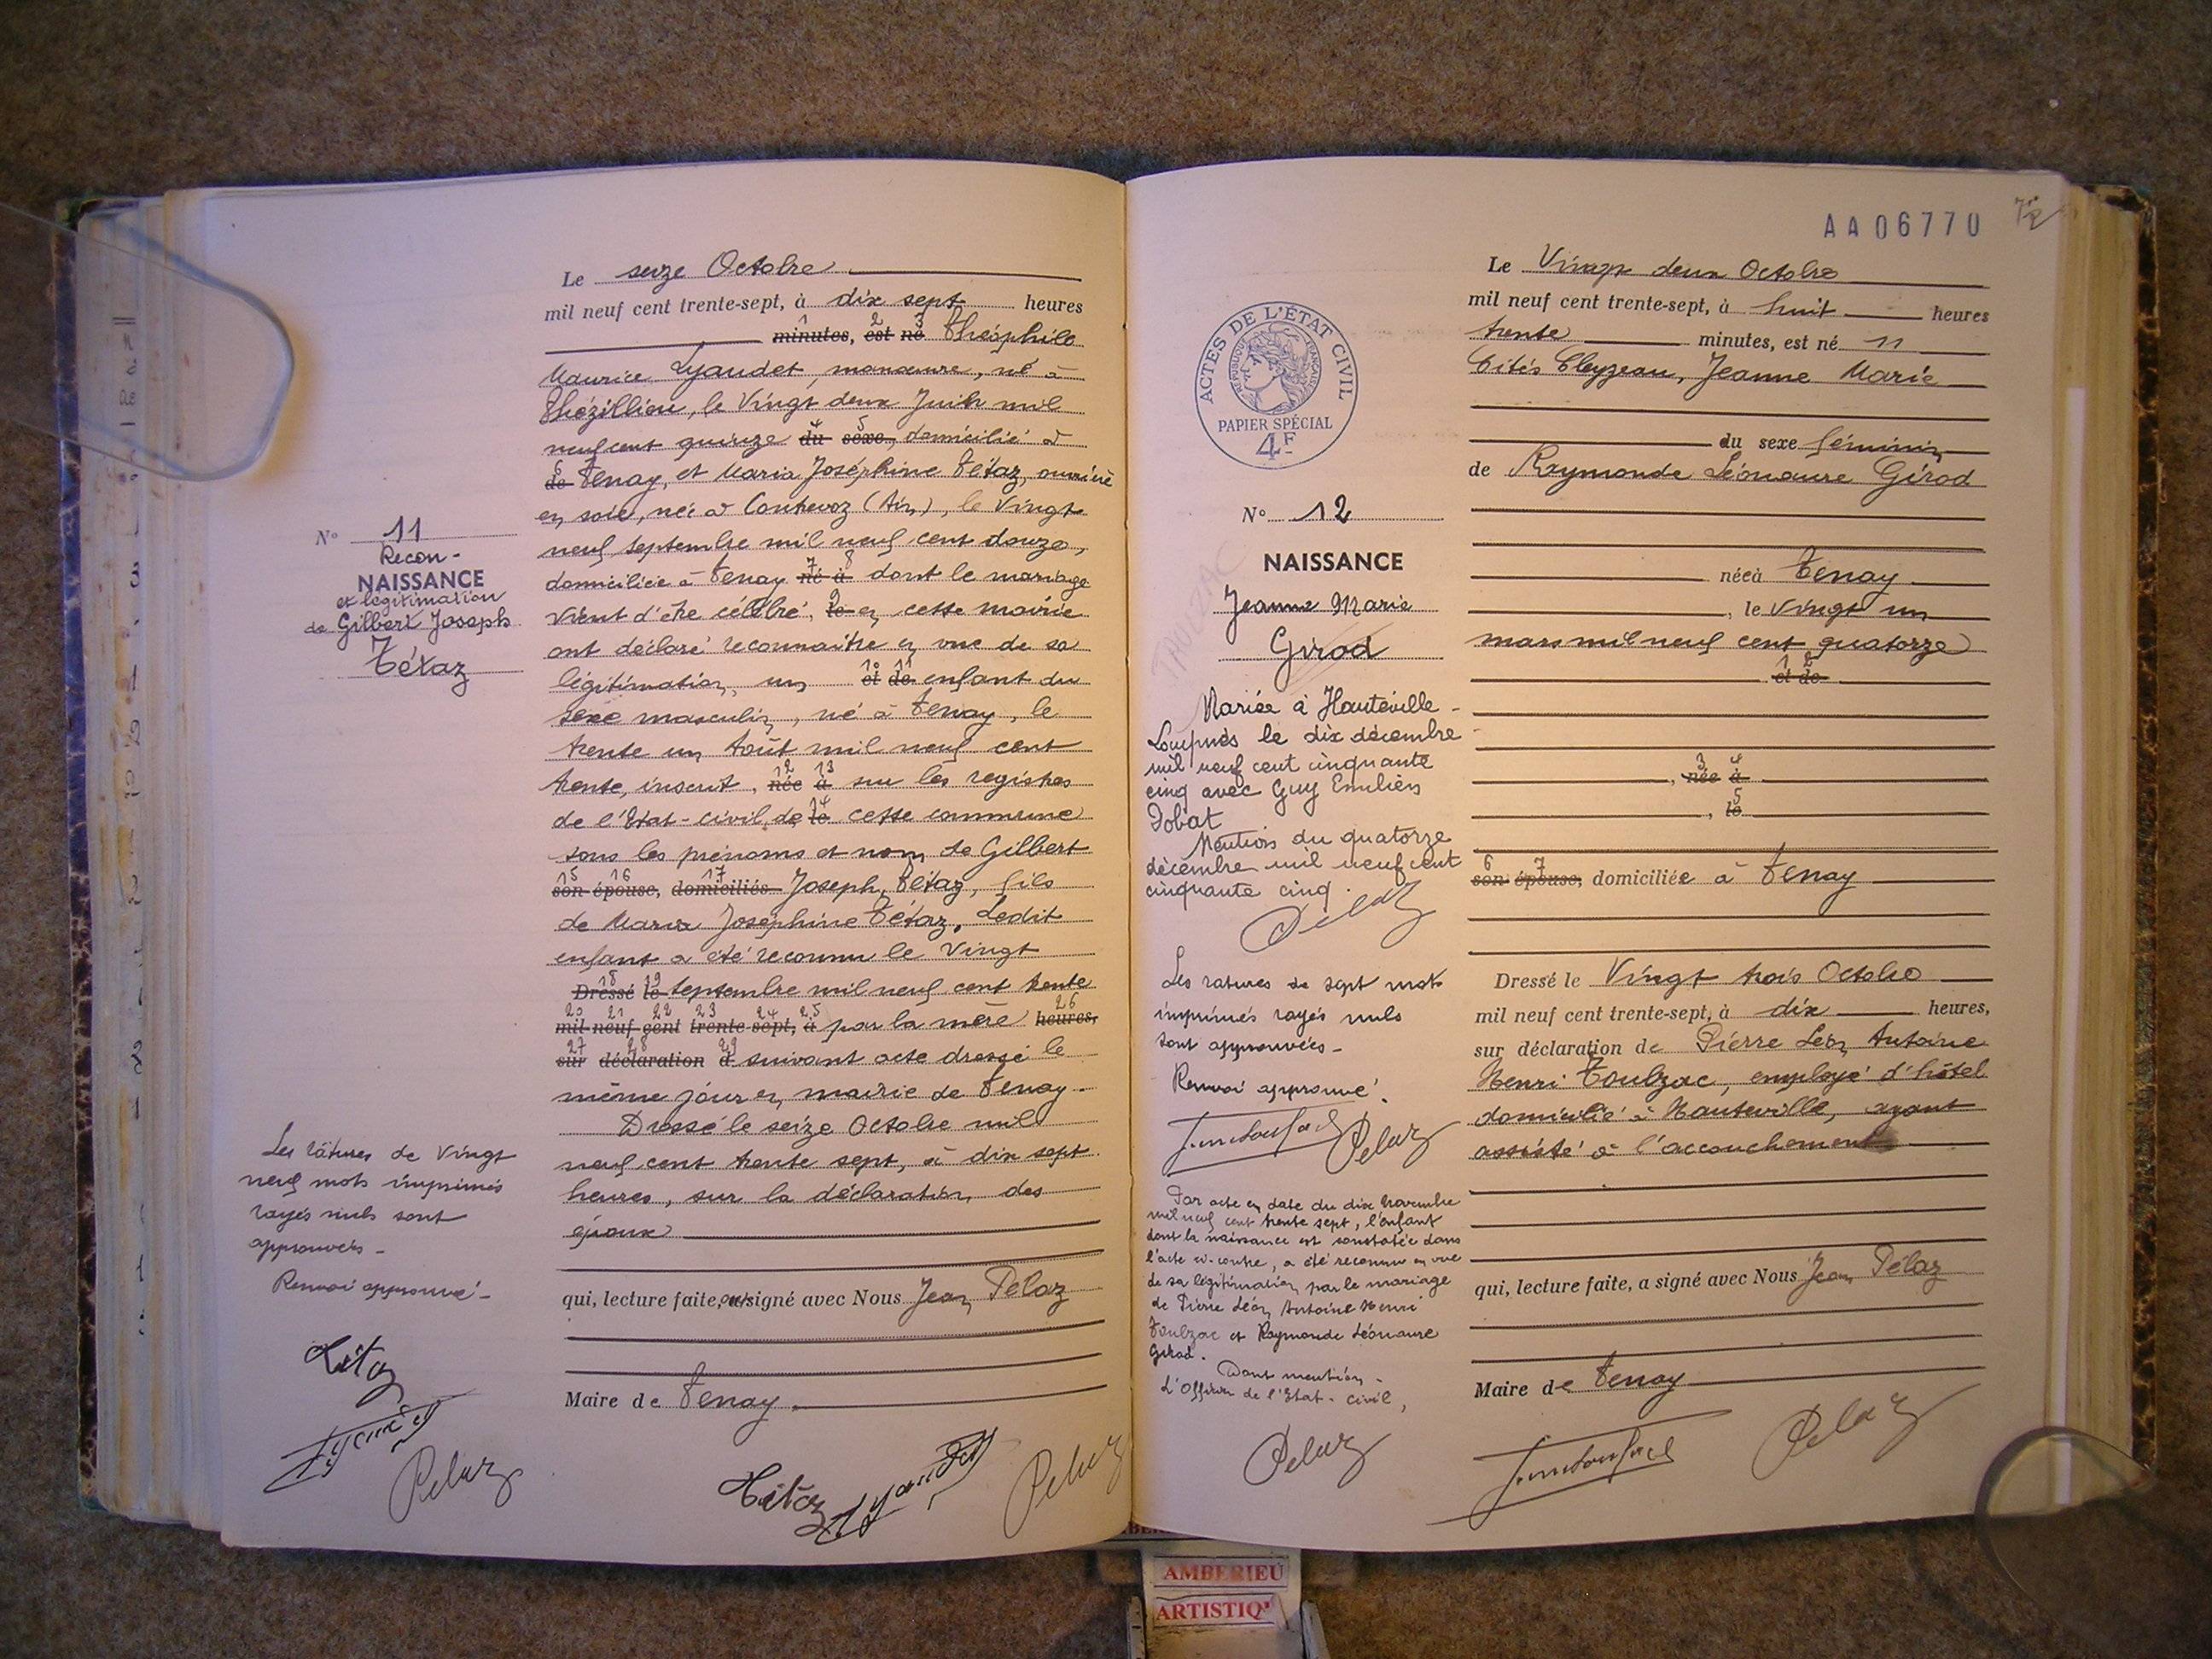 Le seize Octobre
mil neuf cent trente-sept, à dix sept heures
1 2 3
minutes, est né Théophile
Maurice Lyaudet, manœuvre, né à
Thézillieu, le Vingt deux Juin mil
4 5
neuf cent quinze du sexe, domicilié à
6
de Tenay, et Maria Joséphine Tétaz, ouvrière
en soie, née à Contrevoz (Ain), le Vingt
neuf septembre mil neuf cent douze,
7 8
domiciliée à Tenay né à dont le mariage
9
vient d'être célébré, le en cette mairie
ont déclaré reconnaître en vue de sa
10 11
légitimation, un et de enfant du
sexe masculin, né à Tenay, le
trente un Août mil neuf cent
12 13
trente, inscrit, née à sur les registres
14
de l'Etat-civil de le cette commune
sous les prénoms et nom de Gilbert
15 16 17
son épouse, domiciliés Joseph, Tétaz, fils
de Maria Joséphine Tétaz. Ledit
enfant a été reconnu le Vingt
18 19
Dressé le Septembre mil neuf cent trente
20 21 22 23 24 25 26
mil neuf cent trente-sept, à par la mère heures,
27 28 29
sur déclaration d suivant acte dressé le
même jour en mairie de Tenay.
Dressé le seize Octobre mil
neuf cent trente sept, à dix sept
heures, sur la déclaration des
époux
qui, lecture faite, ont signé avec Nous Jean Pélaz
Maire de Tenay
Tétaz
Lyaudet
Pelaz
N° 11
Recon-
NAISSANCE
et légitimation
de Gilbert Joseph
Tétaz
Les râtures de Vingt
neuf mots imprimés
rayés nuls sont
approuvés -
Renvoi approuvé -
Tétaz
Lyaudet
Pelaz
AA06770
72
ACTES DE L'ÉTAT CIVIL
RÉPUBLIQUE FRANÇAISE
PAPIER SPÉCIAL
4F
N° 12
NAISSANCE
Jeanne Marie
Girod
Mariée à Hauteville-
Lompnès le dix décembre
mil neuf cent cinquante
cinq avec Guy Emilien
Dobat
Mention du quatorze
décembre mil neuf cent
cinquante cinq.
Pelaz
Les ratures de sept mots
imprimés rayés nuls
sont approuvées -
Renvoi approuvé.
Pelaz
Par acte en date du dix Novembre
mil neuf cent trente sept, l'enfant
dont la naissance est constatée dans
l'acte ci-contre, a été reconnu en vue
de sa légitimation par le mariage
de Pierre Léon Antoine Henri
Toulzac et Raymonde Léonaure
Girod.
Dont mention -
L'Officier de l'Etat-civil,
Pelaz
Le Vingt deux Octobre
mil neuf cent trente-sept, à huit heures
trente minutes, est né 11
Cités Cleyzeau, Jeanne Marie
du sexe féminin
de Raymonde Léonaure Girod
née à Tenay
, le vingt un
mars mil neuf cent quatorze
1 2
et de
3 4
, née à
5
, le
6 7
son épouse, domiciliée à Tenay
Dressé le Vingt trois Octobre
mil neuf cent trente-sept, à dix heures,
sur déclaration de Pierre Léon Antoine
Henri Toulzac, employé d'hôtel
domicilié à Hauteville, ayant
assisté à l'accouchement
qui, lecture faite, a signé avec Nous Jean Pélaz
Maire de Tenay
Pelaz
AMBERIEU
ARTISTIQ